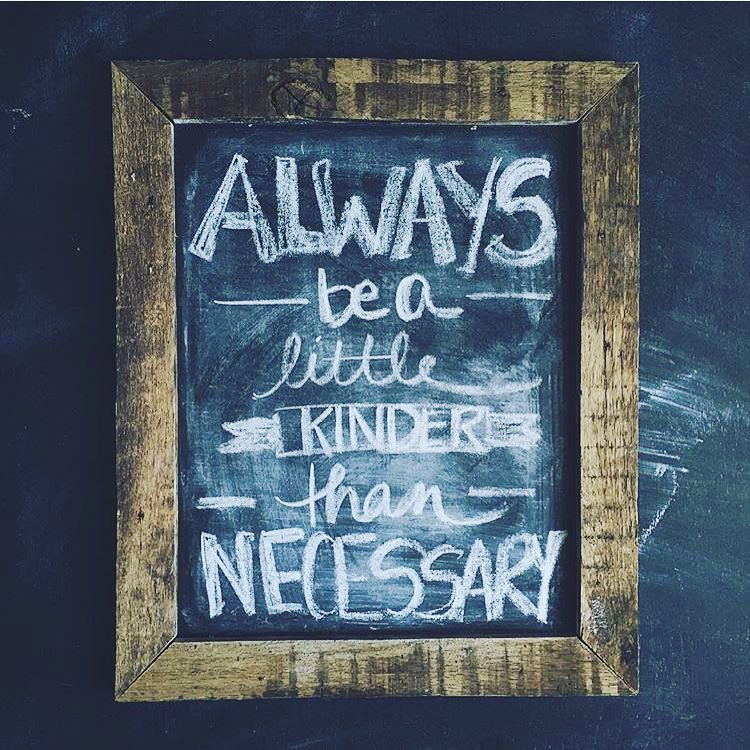 ALWAYS
be a
little
KINDER
than
NECESSARY